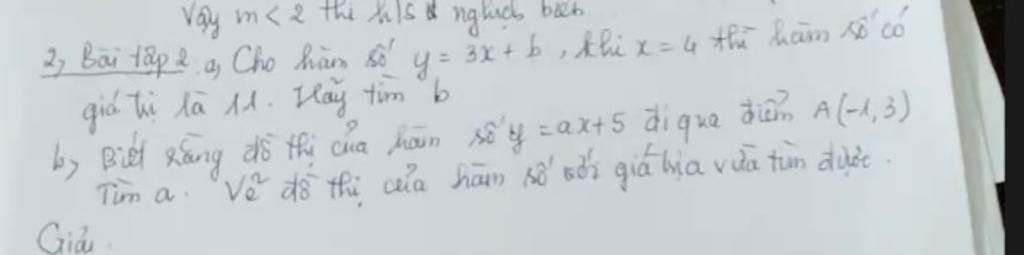 Vậy m < 2 thì h/s nghịch biến
2, Bài tập 2 a, Cho hàm số y = 3x + b, khi x = 4 thì hàm số có
giá trị là 11. Hãy tìm b
b, Biết rằng đồ thị của hàm số y = ax + 5 đi qua điểm A(-1, 3)
Tìm a. Vẽ đồ thị của hàm số với giá trị a vừa tìm được.
Giải.